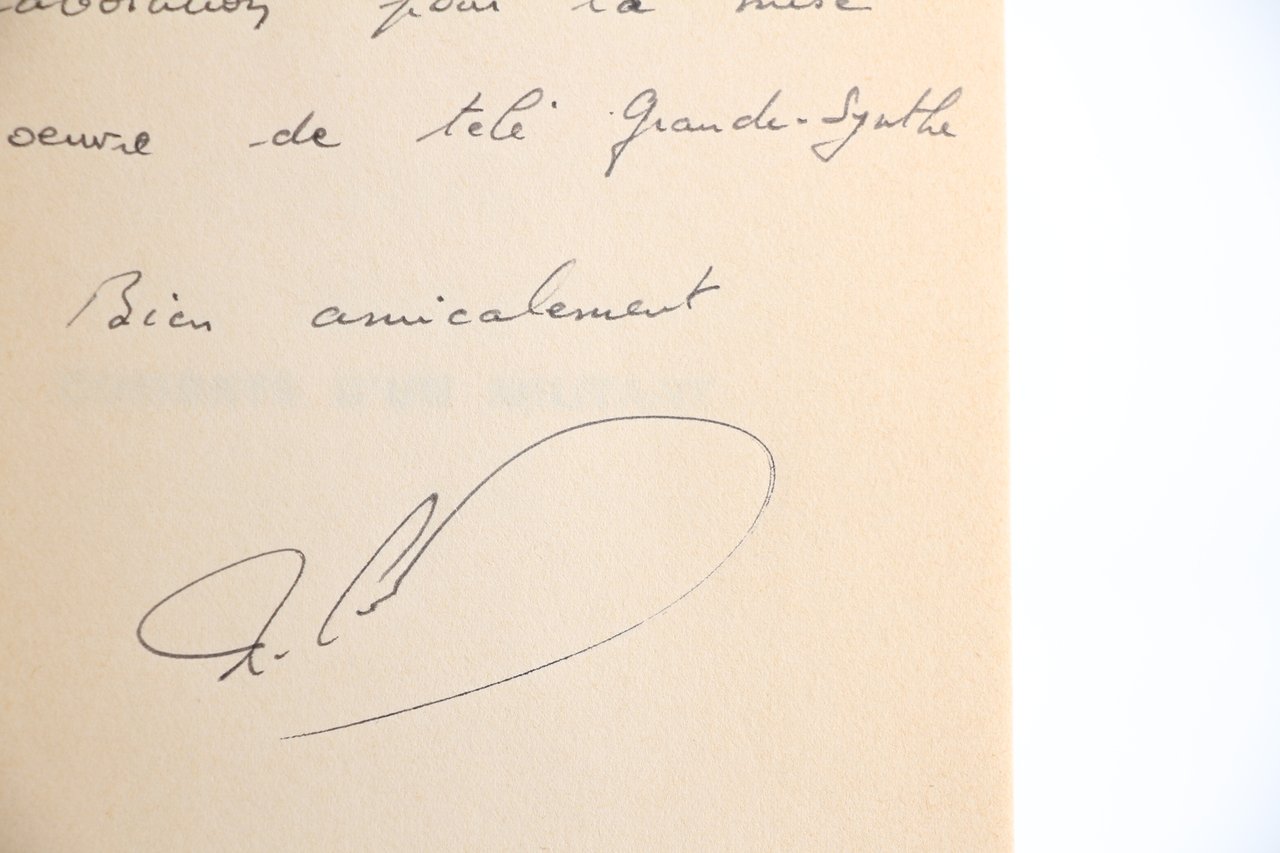 pour la mise
oeuvre de télé Grande-Synthe
Bien amicalement